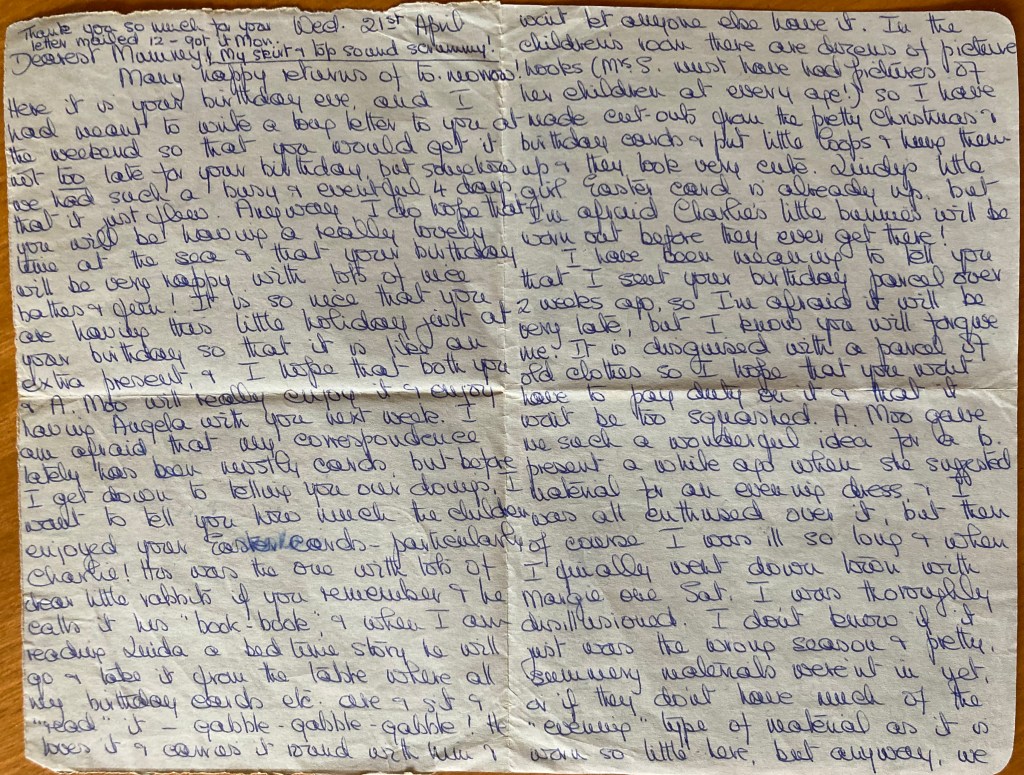 Thank you so much for your
letter mailed 12 - got it Mon.
Wed. 21st April
Dearest Mummy, My skirt & top sound scrummy!
Many happy returns of to-morrow!
Here it is your birthday eve, and I
had meant to write a long letter to you at
the weekend so that you would get it
not too late for your birthday, but somehow
we had such a busy & eventful 4 days
that it just flew. Anyway I do hope that
you will be having a really lovely
time at the sea & that your birthday
will be very happy with lots of nice
bathes & fun! It is so nice that you
are having this little holiday just at
your birthday so that it is like an
extra present, & I hope that both you
& A. Moo will really enjoy it & enjoy
having Angela with you next week. I
am afraid that my correspondence
lately has been mostly cards, but before
I get down to telling you our doings, I
want to tell you how much the children
enjoyed your Easter cards - particularly
Charlie! His was the one with lots of
dear little rabbits if you remember & he
calls it his "book-book", & when I am
reading Linda a bed time story he will
go & take it from the table where all
my birthday cards etc. are & sit &
"read" it - gabble-gabble-gabble! He
loves it & carries it round with him &
won't let anyone else have it. In the
children's room there are dozens of picture
hooks (Mrs. S. must have had pictures of
her children at every age!) so I have
made cut-outs from the pretty Christmas &
birthday cards & put little loops & hung them
up & they look very cute. Linda's little
girl Easter card is already up, but
I'm afraid Charlie's little bunnies will be
worn out before they ever get there!
I have been meaning to tell you
that I sent your birthday parcel over
2 weeks ago, so I'm afraid it will be
very late, but I know you will forgive
me. It is disguised with a parcel of
old clothes so I hope that you won't
have to pay duty on it & that it
won't be too squashed. A. Moo gave
me such a wonderful idea for a b.
present a while ago when she suggested
material for an evening dress, & I
was all enthused over it, but then
of course I was ill so long & when
I finally went down town with
Margie one Sat. I was thoroughly
disillusioned. I don't know if it
just was the wrong season & pretty,
summery materials weren't in yet,
or if they don't have much of the
"evening" type of material as it is
worn so little here, but anyway, we